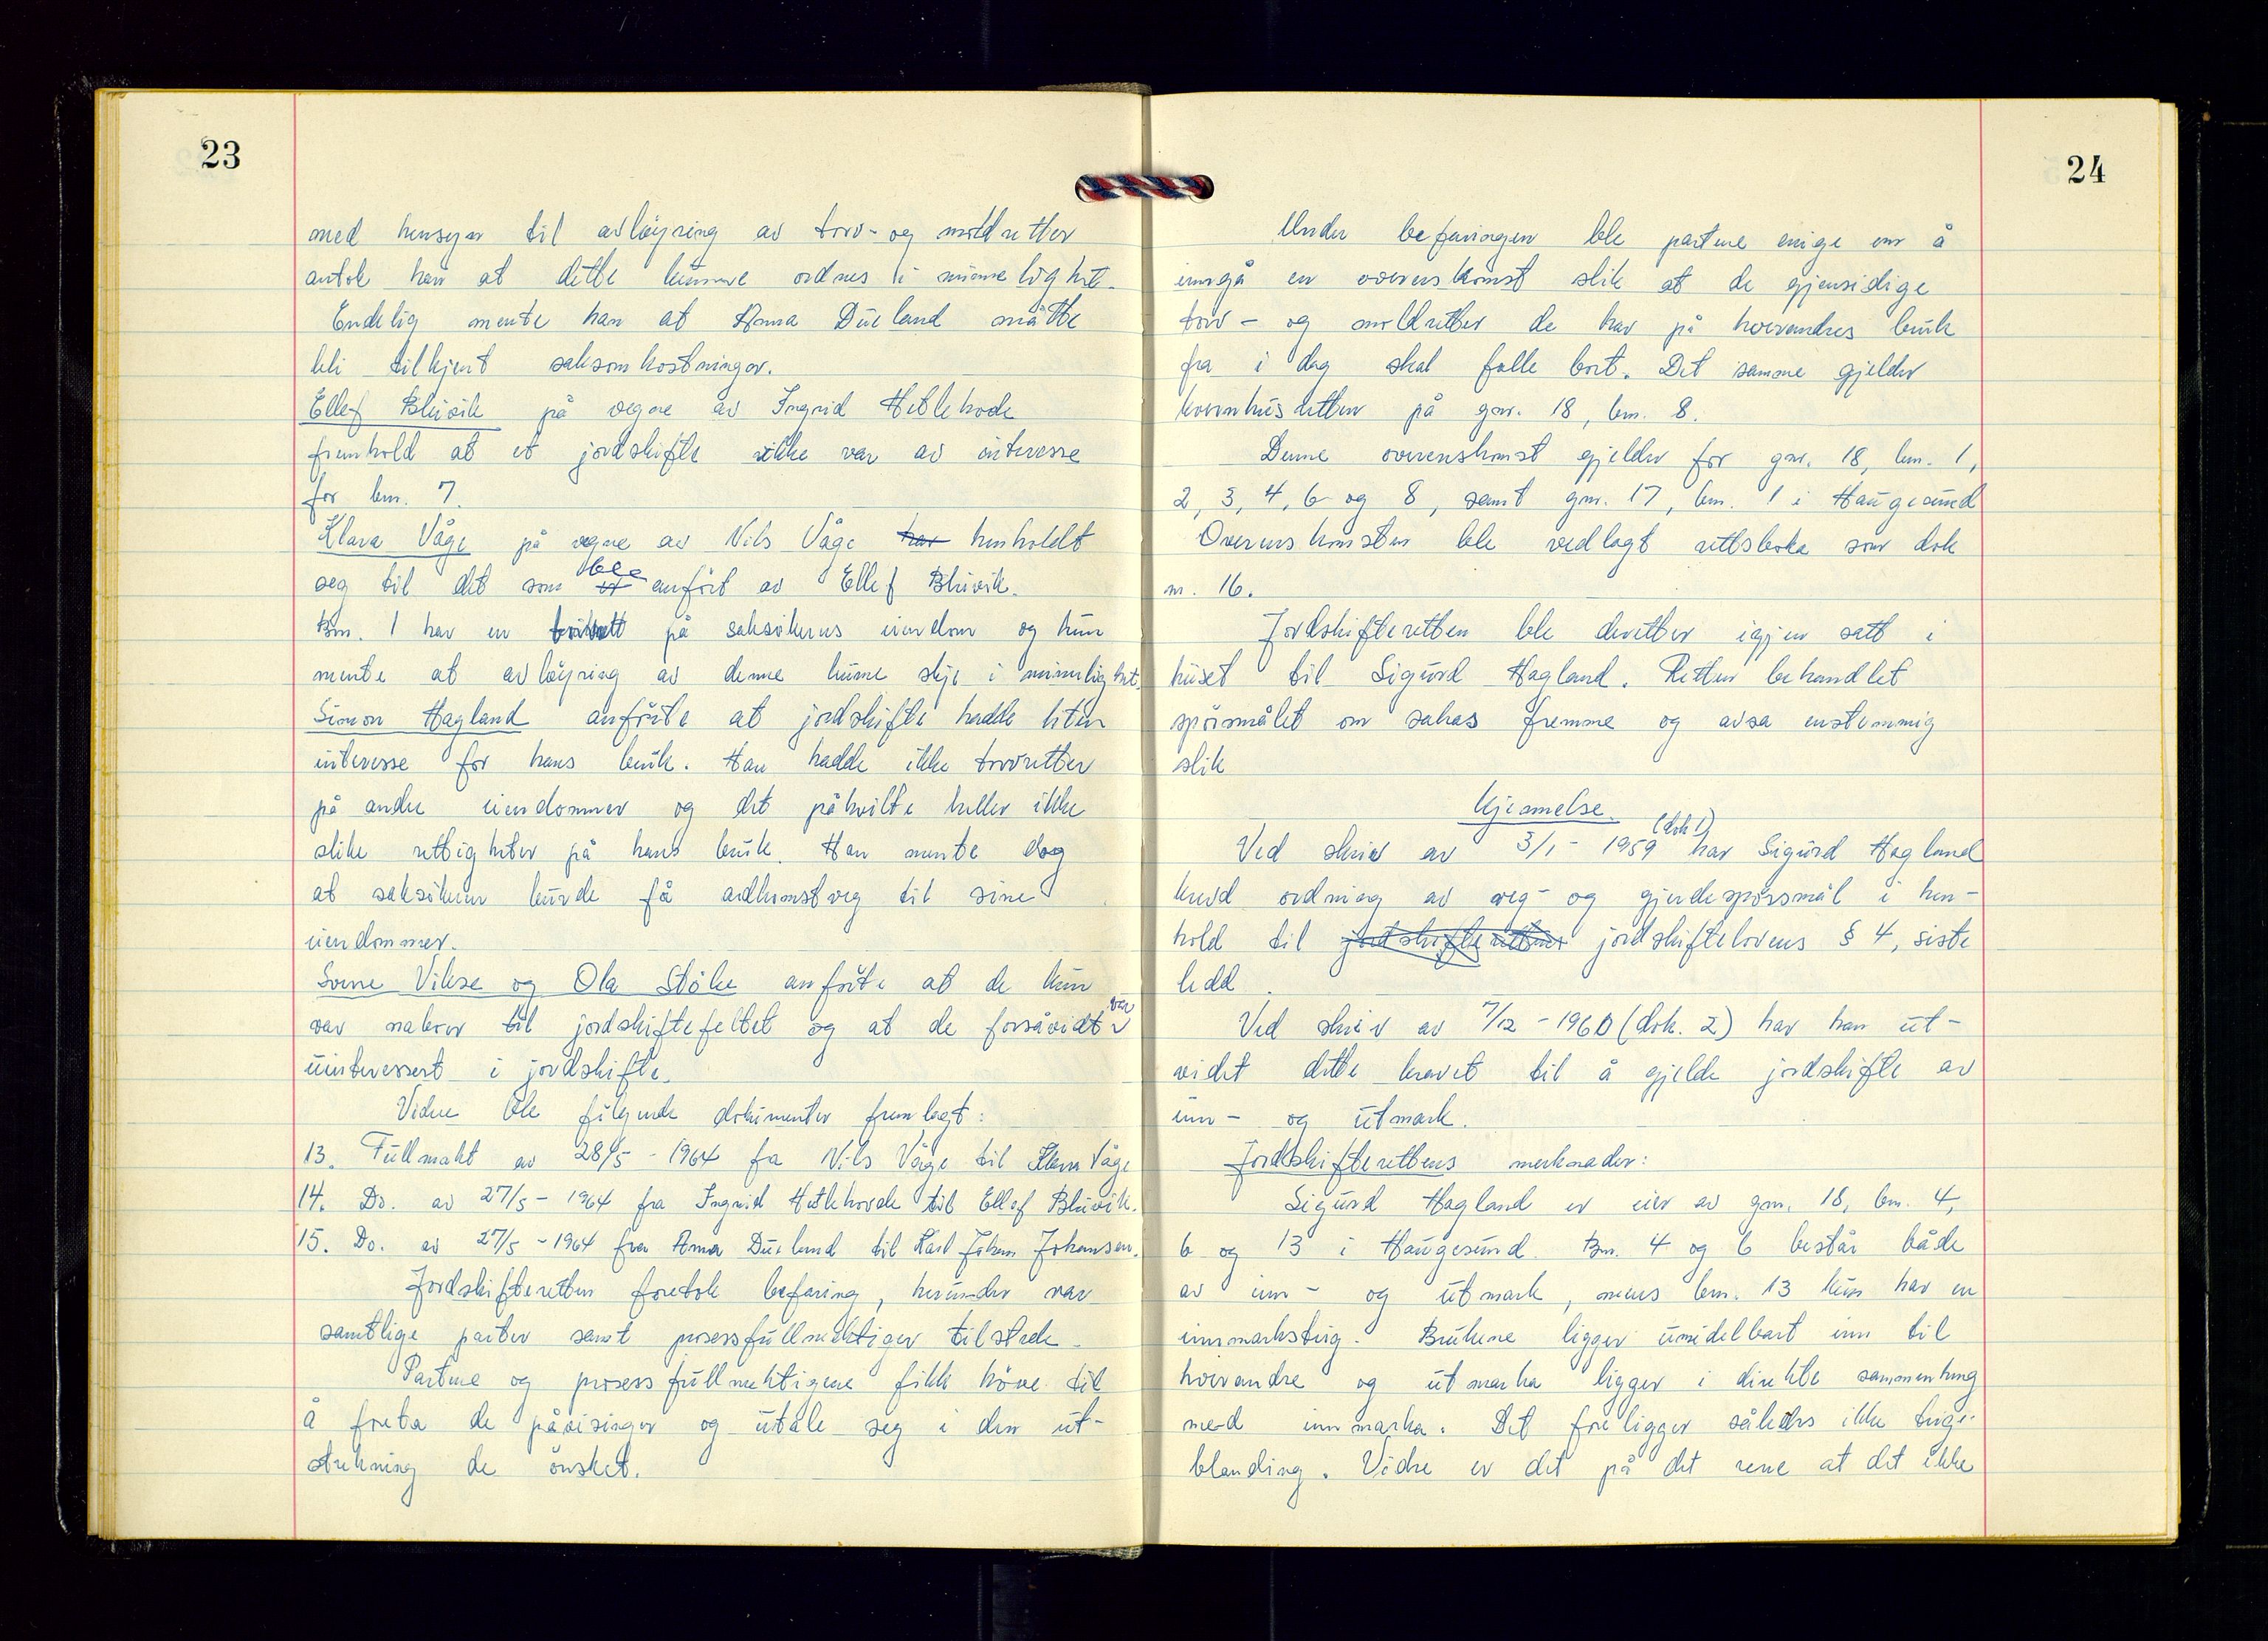 23
med hensyn til avløysing av torv- og moldretter
antok han at dette kunne ordnes i minnelighet.
Endelig mente han at Anna Dueland måtte
bli tilkjent saksomkostninger.
Ellef Bleivik på vegne av Ingrid Hetlehode
fremhold at et jordskifte ikke var av interesse
for bnr. 7.
Klara Våge på vegne av Nils Våge har henholdt
seg til det som ble anført av Ellef Bleivik.
Bnr. 1 har en torvrett på saksökerens eiendom og hun
mente at avlöysing av denne kunne skje i minnelighet.
Simon Hagland anförte at jordskifte hadde liten
interesse for hans bruk. Han hadde ikke torvretter
på andre eiendommer og det påhvilte heller ikke
slike rettigheter på hans bruk. Han mente dog
at saksökeren burde få adkomstveg til sine
eiendommer.
Sverre Vikse og Ola Stöle anförte at de kun
var naboer til jordskiftefeltet og at de forsåvidt var
uinteressert i jordskifte.
Videre ble fölgende dokumenter fremlagt:
13. Fullmakt av 28/5 - 1964 fra Nils Våge til Klara Våge
14. Do. av 27/5 - 1964 fra Ingrid Hetlehode til Ellef Bleivik.
15. Do. av 27/5 - 1964 fra Anna Dueland til Karl Johan Johansen.
Jordskifteretten foretok befaring, herunder var
samtlige parter samt prosessfullmektiger tilstede.
Partene og prosessfullmektigene fikk höve til
å foreta de påvisinger og uttale seg i den ut-
strekning de önsket.
24
Under befaringen ble partene enige om å
inngå en overenskomst slik at de gjensidige
torv- og moldretter de har på hverandres bruk
fra i dag skal falle bort. Det samme gjelder
kvernhusretten på gnr. 18, bnr. 8.
Denne overenskomst gjelder for gnr. 18, bnr. 1,
2, 3, 4, 6 og 8, samt gnr. 17, bnr. 1 i Haugesund
Overenskomsten ble vedlagt rettsboka som dok
nr. 16.
Jordskifteretten ble deretter igjen satt i
huset til Sigurd Hagland. Retten behandlet
spörsmålet om sakas fremme og avsa enstemmig
slik
Kjennelse.
Ved skriv av 3/1 - 1959 (dok 1) har Sigurd Hagland
krevd ordning av veg- og gjerdespörsmål i hen-
hold til jordskifteretten jordskiftelovens § 4, siste
ledd.
Ved skriv av 7/12 - 1960 (dok. 2) har han ut-
videt dette kravet til å gjelde jordskifte av
inn- og utmark.
Jordskifterettens merknader:
Sigurd Hagland er eier av gnr. 18, bnr. 4,
6 og 13 i Haugesund. Bnr. 4 og 6 består både
av inn- og utmark, mens bnr. 13 kun har en
innmarksteig. Brukene ligger umidelbart inn til
hverandre og utmarka ligger i direkte sammenheng
med innmarka. Det foreligger således ikke teig-
blanding. Videre er det på det rene at det ikke